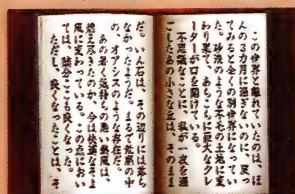 この世界と離れていたのは、ほ
んの3カ月に過ぎないのに、戻っ
てみると全くの別世界になってい
た。砂漠のような不毛の土地に変
わり果て、あちこちに巨大なクレ
ーターが口を開けている。
不思議なことに、私が一夜を過
ごしたあの小さな丘は、そのまま
だ。いん石は、その辺りには落ち
なかったようだ。まるで荒廃の中
の、オアシスのような存在だ。
あの暑く気持ちの悪い熱風は、
燃え尽きたのか、今は快適なそよ
風に変わっている。この点におい
ては、随分ここも良くなった。
ただし、良くなったことは、そ